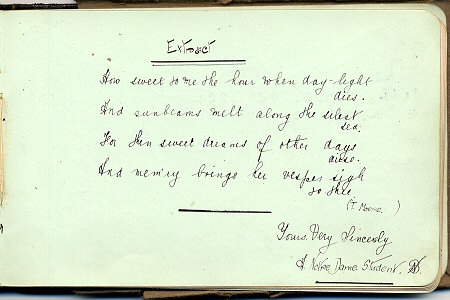 Extract
How sweet to me the hour when day-light
dies.
And sunbeams melt along the silent
sea.
For then sweet dreams of other days
arise.
And mem'ry brings her vesper sigh
to thee
(T. Moore.)
Yours Very Sincerely
A Notre Dame Student.